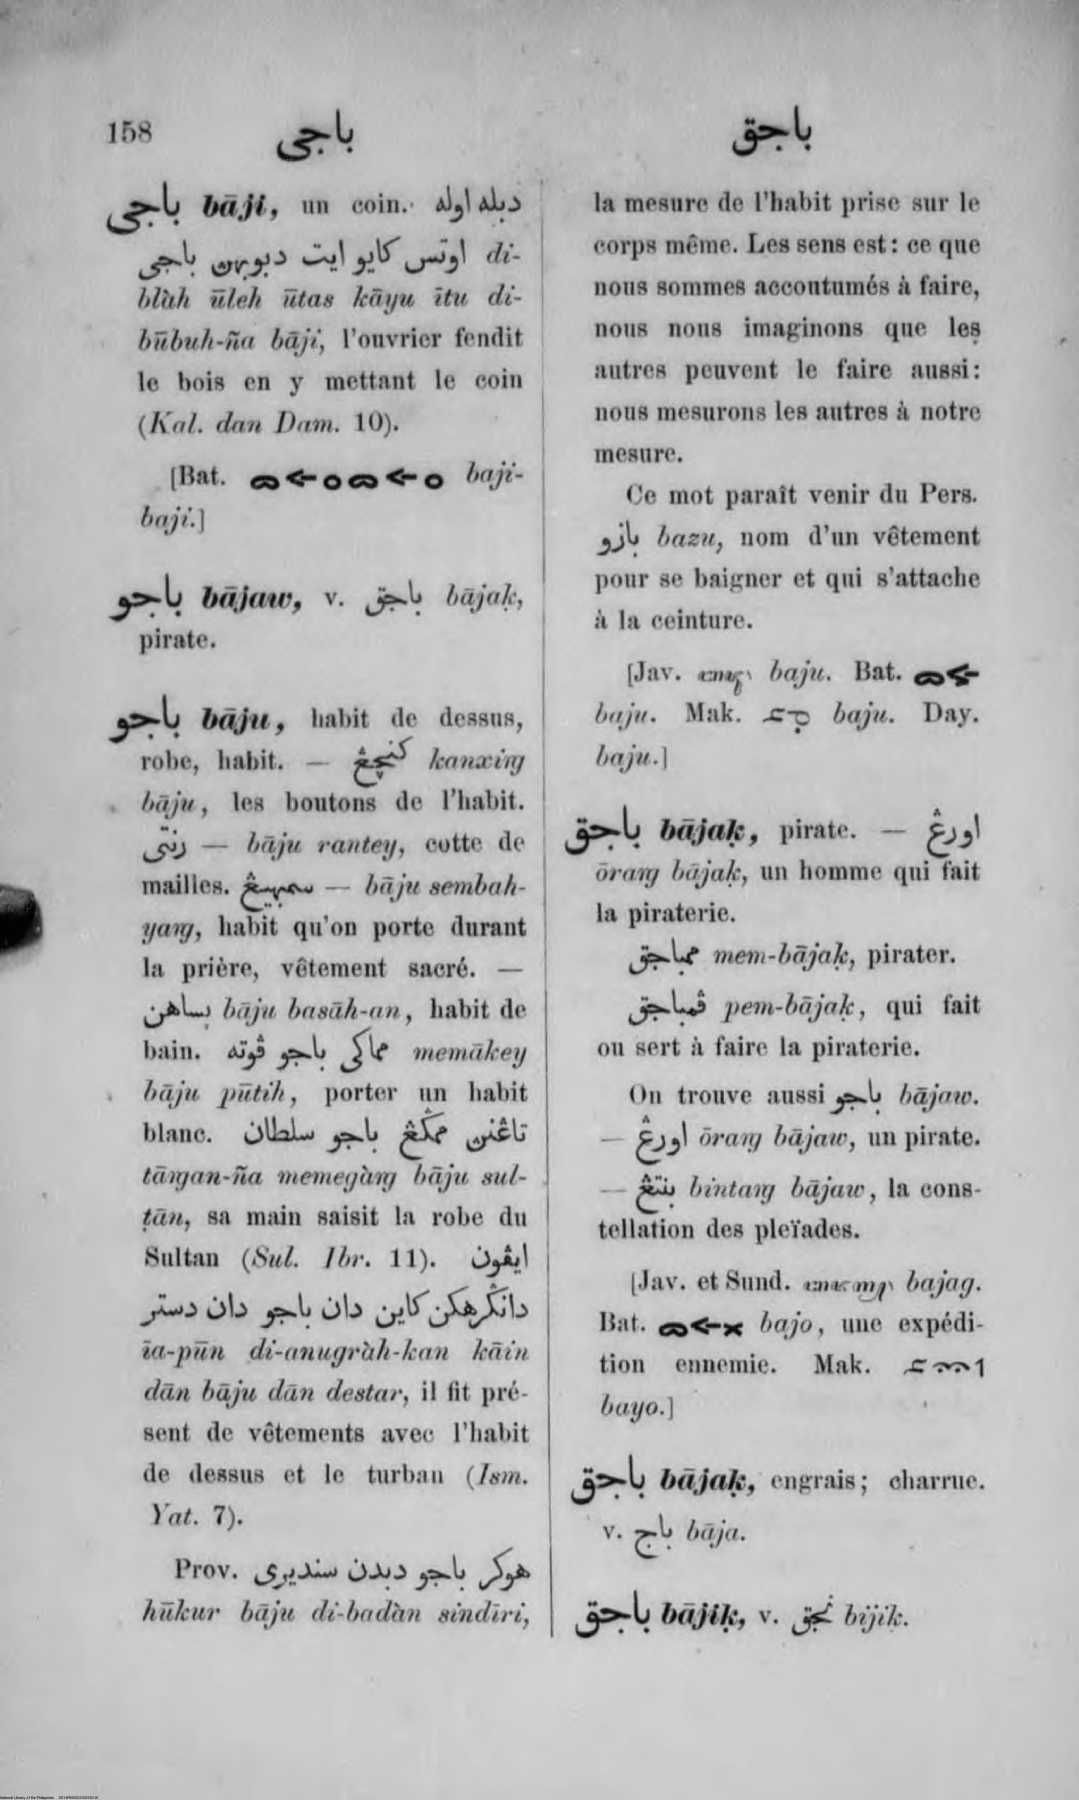 158 باجي باجق
باجي bāji, un coin. دبله اوله
اوتس كايو ايت دبوبهن باجي di-
blàh ūleh ūtas kāyu ītu di-
būbuh-ña bāji, l'ouvrier fendit
le bois en y mettant le coin
(Kal. dan Dam. 10).
[Bat. baji-
baji.]
باجو bājaw, v. باجق bājaḳ,
pirate.
باجو bāju, habit de dessus,
robe, habit. — كنچڠ kanxiṅg
bāju, les boutons de l'habit.
رنتي — bāju rantey, cotte de
mailles. سمبهيڠ — bāju sembah-
yaṅg, habit qu'on porte durant
la prière, vêtement sacré. —
بساهن bāju basāh-an, habit de
bain. مماكي باجو ڤوته memākey
bāju pūtih, porter un habit
blanc. تاڠنن ممݢڠ باجو سلطان
tāṅgan-ña memegàṅg bāju sul-
ṭān, sa main saisit la robe du
Sultan (Sul. Ibr. 11). ايڤون
دانݢرهكن كاين دان باجو دان دستر
īa-pūn di-anugràh-kan kāin
dān bāju dān destar, il fit pré-
sent de vêtements avec l'habit
de dessus et le turban (Ism.
Yat. 7).
Prov. هوكر باجو دبدن سنديري
hūkur bāju di-badàn sindīri,
la mesure de l'habit prise sur le
corps même. Les sens est : ce que
nous sommes accoutumés à faire,
nous nous imaginons que les
autres peuvent le faire aussi :
nous mesurons les autres à notre
mesure.
Ce mot paraît venir du Pers.
بازو bazu, nom d'un vêtement
pour se baigner et qui s'attache
à la ceinture.
[Jav. baju. Bat.
baju. Mak. baju. Day.
baju.]
باجق bājaḳ, pirate. — اورڠ
ōraṅg bājaḳ, un homme qui fait
la piraterie.
ممباجق mem-bājaḳ, pirater.
ڤمباجق pem-bājaḳ, qui fait
ou sert à faire la piraterie.
On trouve aussi باجو bājaw.
— اورڠ ōraṅg bājaw, un pirate.
— بنتڠ bintaṅg bājaw, la cons-
tellation des pleïades.
[Jav. et Sund. bajag.
Bat. bajo, une expédi-
tion ennemie. Mak.
bayo.]
باجق bājaḳ, engrais ; charrue.
v. باج bāja.
باجق bājiḳ, v. بجق bijiḳ.